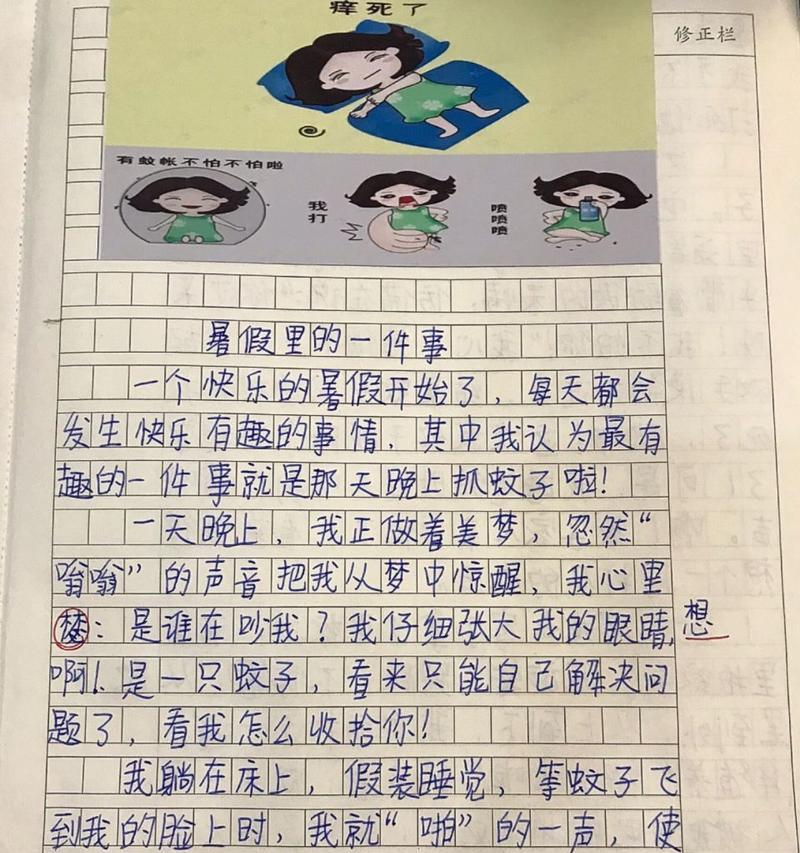 痒死了
修正栏
有蚊帐不怕不怕啦
我打
喷喷喷
暑假里的一件事
一个快乐的暑假开始了，每天都会
发生快乐有趣的事情，其中我认为最有
趣的一件事就是那天晚上抓蚊子啦！
一天晚上，我正做着美梦，忽然“
嗡嗡”的声音把我从梦中惊醒，我心里
梦：是谁在吵我？我仔细张大我的眼睛，
想
啊！是一只蚊子，看来只能自己解决问
题了，看我怎么收拾你！
我躺在床上，假装睡觉，等蚊子飞
到我的脸上时，我就“啪”的一声，使